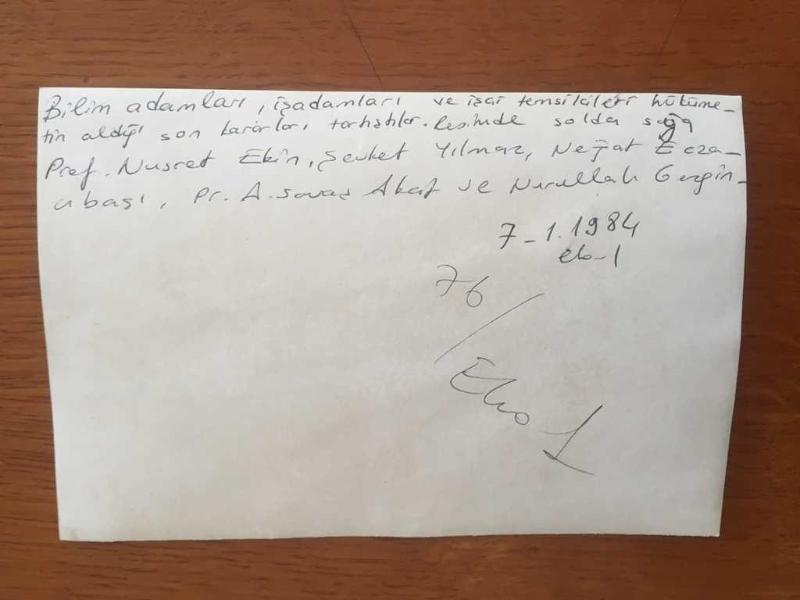 Bilim adamları, işadamları ve işçi temsilcileri hüküme-
tin aldığı son kararları tartıştılar. Resimde solda sağa
Prof. Nusret Ekin, Şevket Yılmaz, Nejat Ecza-
cıbaşı, Pr. A. Savaş Akat ve Nurullah Gezgin-
7-1.1984
eko-1
76
/
Eko 1